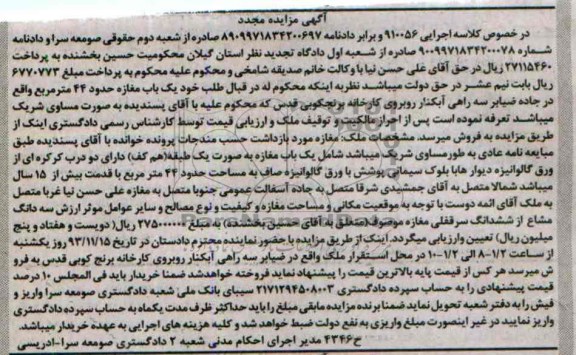 آگهی مزایده مجدد
در خصوص کلاسه اجرایی ۹۱۰۰۵۶ و برابر دادنامه ۸۹۰۹۹۷۱۸۳۴۲۰۰۶۹۷ صادره از شعبه دوم حقوقی صومعه سرا و دادنامه
شماره ۹۰۰۹۹۷۱۸۳۴۲۰۰۰۷۸ صادره از شعبه اول دادگاه تجدید نظر استان گیلان محکومیت حسین بخشنده به پرداخت
۲۷۱۱۵۴۶۰ ریال در حق آقای علی حسن نیا با وکالت خانم صدیقه شامخی و محکوم علیه محکوم به پرداخت مبلغ ۶۷۷۰۷۷۳
ریال بابت نیم عشر در حق دولت میباشد نظر به اینکه محکوم له در قبال طلب خود یک باب مغازه حدود ۴۴ مترمربع واقع
در جاده ضیابر سه راهی آبکنار روبروی کارخانه برنجکوبی قدس که محکوم علیه با آقای پسندیده به صورت مساوی شریک
میباشد تعرفه نموده است پس از احراز مالکیت و توقیف ملک و ارزیابی قیمت توسط کارشناس رسمی دادگستری اینک از
طریق مزایده به فروش میرسد. مشخصات ملک: مغازه مورد بازداشت حسب مندرجات پرونده خوانده با آقای پسندیده طبق
مبایعه نامه عادی به طور مساوی شریک میباشد شامل یک باب مغازه به صورت یک طبقه(هم کف) دارای دو درب کرکره ای از
ورق گالوانیزه دیوار هابا بلوک سیمانی پوشش با ورق گالوانیزه صاف به مساحت حدود ۴۴ متر مربع با قدمت بیش از ۱۵ سال
میباشد شمالا متصل به آقای جمشیدی شرقا متصل به جاده آسفالت عمومی جنوبا متصل به مغازه علی حسن نیا غربا متصل
به ملک آقای ائمه دوست با توجه به موقعیت مکانی و مساحت مغازه و کیفیت و نوع مصالح و سایر عوامل موثر ارزش سه دانگ
مشاع از ششدانگ سرقفلی مغازه موصوف (متعلق به آقای حسین بخشنده) به مبلغ ۲۷۵۰۰۰۰۰۰ ریال( دویست و هفتاد و پنج
میلیون ریال) تعیین وارزیابی میگردد. اینک از طریق مزایده با حضور نماینده محترم دادستان در تاریخ ۹۳/۱۱/۱۵ روز یکشنبه
از ساعت ۸-۱/۲ الی ۱۰-۱/۲ در محل استقرار ملک واقع در ضیابر سه راهی آبکنار روبروی کارخانه برنج کوبی قدس به فرو
ش میرسد هر کس از قیمت پایه بالاترین قیمت را پیشنهاد نماید فروخته خواهدشد ضمنا خریدار باید فی المجلس ۱۰ درصد
قیمت پیشنهادی را به حساب سپرده دادگستری ۲۱۷۱۲۹۴۵۰۸۰۰۳ سیبای بانک ملی شعبه دادگستری صومعه سرا واریز و
فیش را به دفتر شعبه تحویل نماید ضمنا برنده مزایده مابقی مبلغ را باید حداکثر ظرف مدت یکماه به حساب سپرده دادگستری
واریز نمایید در غیر اینصورت مبلغ واریزی به نفع دولت ضبط خواهد شد و کلیه هزینه های اجرایی به عهده خریدار میباشد.
ح۴۳۴۶ مدیر اجرای احکام مدنی شعبه ۲ دادگستری صومعه سرا-ادریسی